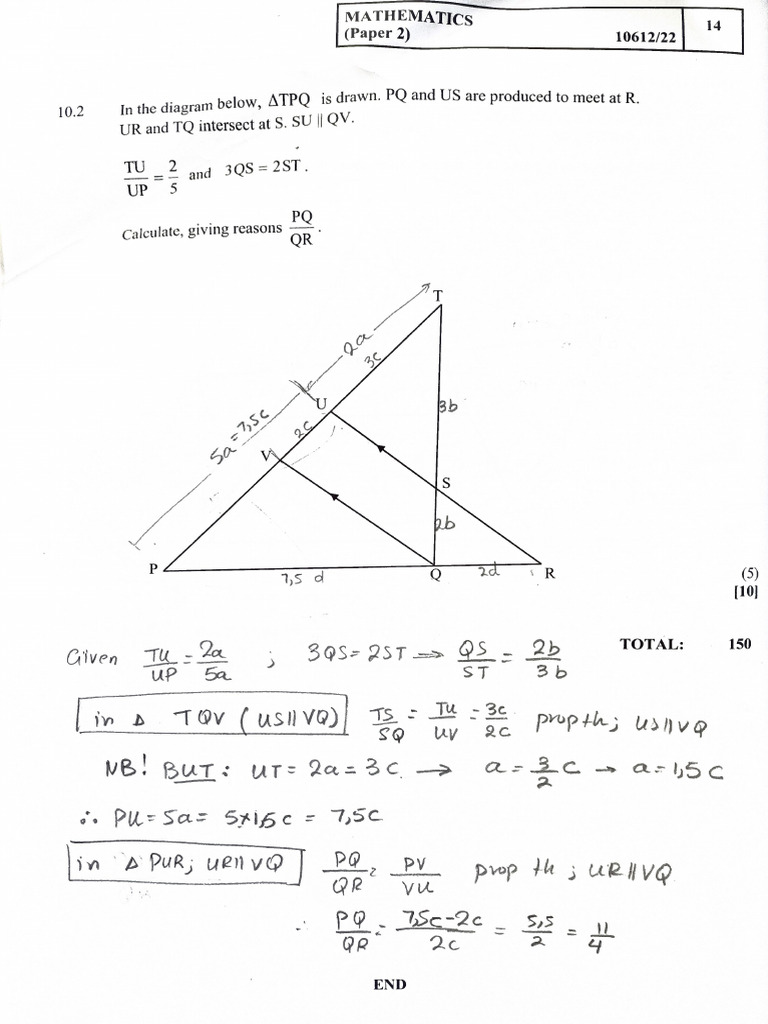 MATHEMATICS
(Paper 2)
10612/22
14
10.2 In the diagram below, ΔTPQ is drawn. PQ and US are produced to meet at R.
UR and TQ intersect at S. SU || QV.
TU/UP = 2/5 and 3QS = 2ST.
Calculate, giving reasons PQ/QR.
T
2a
3c
U
5a = 7,5c
2c
3b
V
S
2b
P
7,5 d
Q
2d
R
(5)
[10]
TOTAL: 150
Given TU/UP = 2a/5a ; 3QS = 2ST → QS/ST = 2b/3b
in Δ TQV (US||VQ) TS/SQ = TU/UV = 3c/2c prop th; US||VQ
NB! BUT: UT = 2a = 3c → a = 3/2 c → a = 1,5 c
∴ PU = 5a = 5×1,5 c = 7,5c
in Δ PUR; UR||VQ PQ/QR = PV/VU prop th ; UR||VQ
∴ PQ/QR = 7,5c-2c/2c = 5,5/2 = 11/4
END